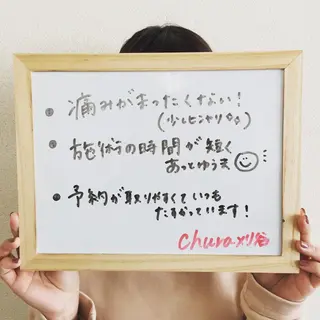 ① 痛みがまったくない!
(少しヒンヤリ
② 施術の時間が短く
あっとゆうま
● 予約が取りやすくていつも
たすかっています!
chura刈谷